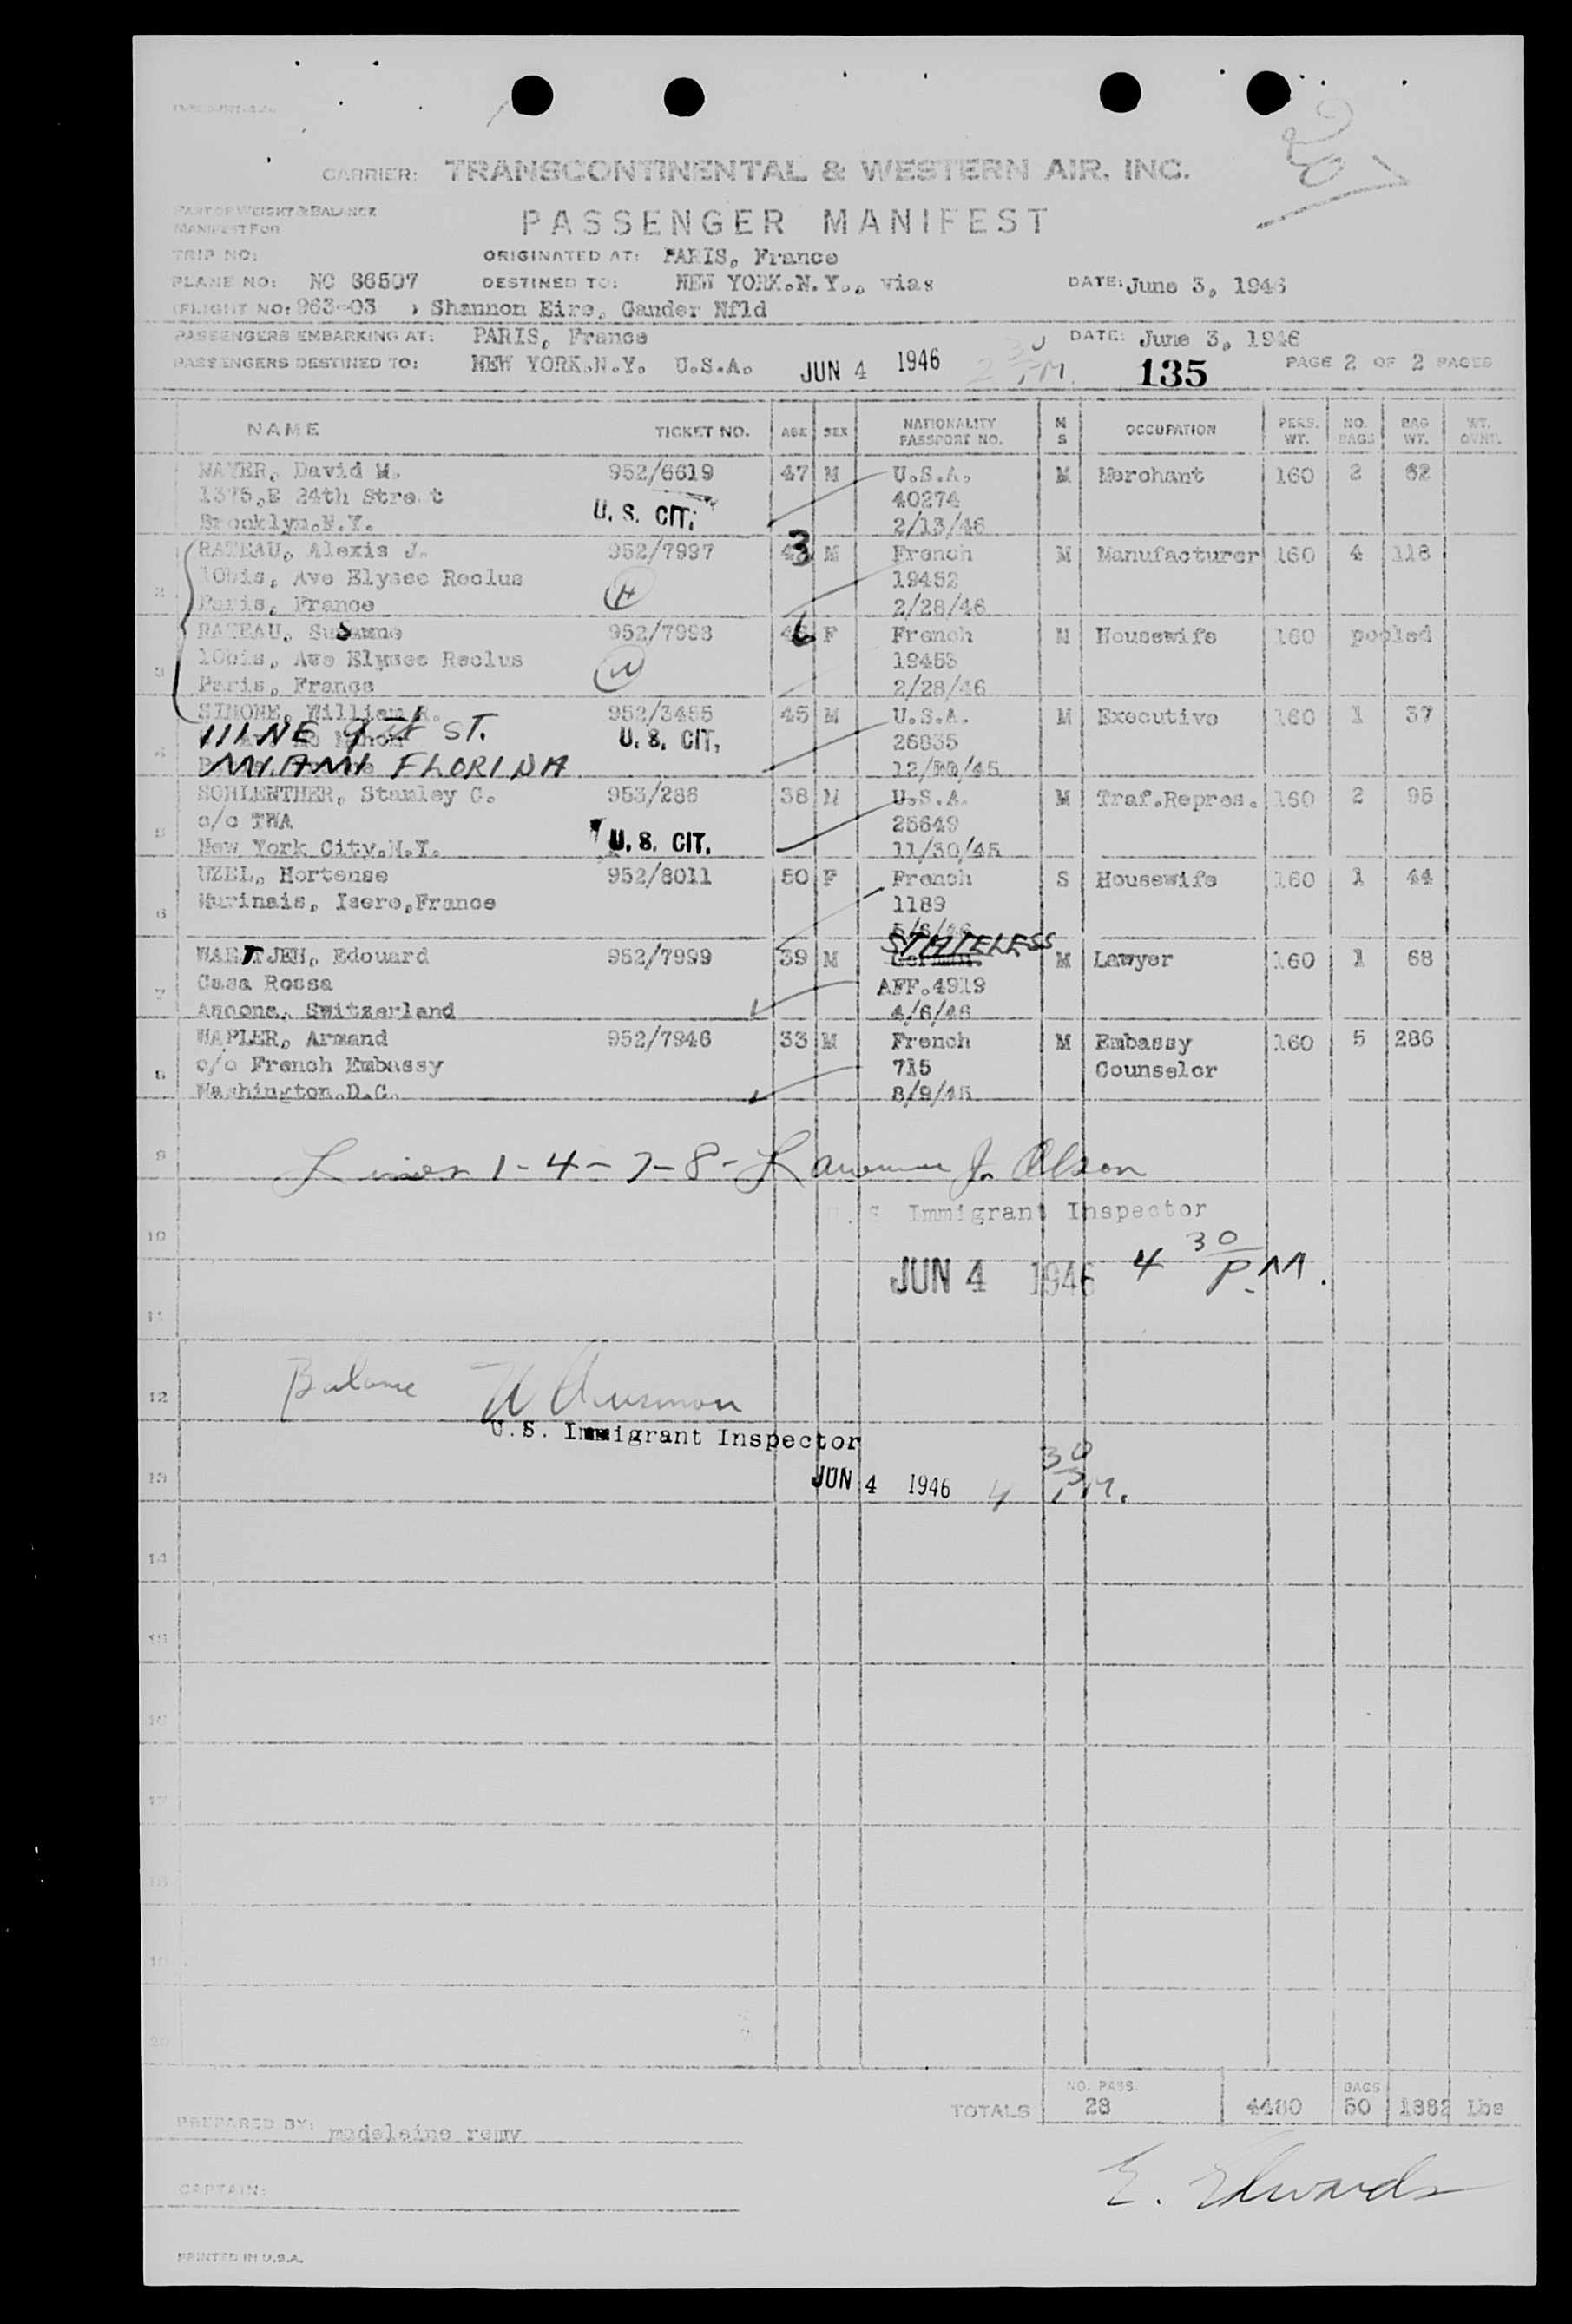 CARRIER: TRANSCONTINENTAL & WESTERN AIR, INC.
PART OF WEIGHT & BALANCE
MANIFEST FOR
PASSENGER MANIFEST
TRIP NO: ORIGINATED AT: PARIS, France
PLANE NO: NC 86507 DESTINED TO: NEW YORK.N.Y., via: DATE: June 3, 1946
(FLIGHT NO: 963-03 ) Shannon Eire, Gander Nfld
PASSENGERS EMBARKING AT: PARIS, France DATE: June 3, 1946
PASSENGERS DESTINED TO: NEW YORK.N.Y. U.S.A. JUN 4 1946 2 30 P.M. 135 PAGE 2 OF 2 PAGES
NAME TICKET NO. AGE SEX NATIONALITY PASSPORT NO. M S OCCUPATION PERS. WT. NO. BAGS BAG WT. WT. OVNT.
MAYER, David M. 952/6619 47 M U.S.A. M Merchant 160 2 62
1375,E 24th Street U. S. CIT. 40274
Brooklyn.N.Y. 2/13/46
RATEAU, Alexis J. 952/7997 43 M French M Manufacturer 160 4 118
2 10bis, Ave Elysee Reclus H 19452
Paris, France 2/28/46
RATEAU, Susanne 952/7998 46 F French M Housewife 160 pooled
3 10bis, Ave Elysee Reclus W 19453
Paris, France 2/28/46
SIMONE, William R. 952/3455 45 M U.S.A. M Executive 160 1 37
111 NE 9 St ST. U. S. CIT. 26835
4 MIAMI FLORIDA 12/ /45
SCHLENTHER, Stanley C. 953/286 38 M U.S.A. M Traf.Repres. 160 2 95
5 c/o TWA 25649
New York City.N.Y. U. S. CIT. 11/30/45
UZEL, Hortense 952/8011 50 F French S Housewife 160 1 44
6 Murinais, Isere,France 1189
STATELESS
WARTJEN, Edouard 952/7999 39 M German. M Lawyer 160 1 68
7 Casa Rossa AFF.4919
Ascona, Switzerland 4/6/46
WAPLER, Armand 952/7946 33 M French M Embassy 160 5 286
8 c/o French Embassy 715 Counselor
Washington.D.C. 8/9/45
9 Lines 1-4-7-8- J. Olson
U.S Immigrant Inspector
10
JUN 4 1946 4 30 P.M.
11
12 Balance
U.S. Immigrant Inspector
13 JUN 4 1946 4 30 P.M.
14
15
16
17
18
19
20
TOTALS NO. PASS. 28 4480 BAGS 50 1882 Lbs
PREPARED BY: madeleine remy
E. Edwards
CAPTAIN:
PRINTED IN U.S.A.